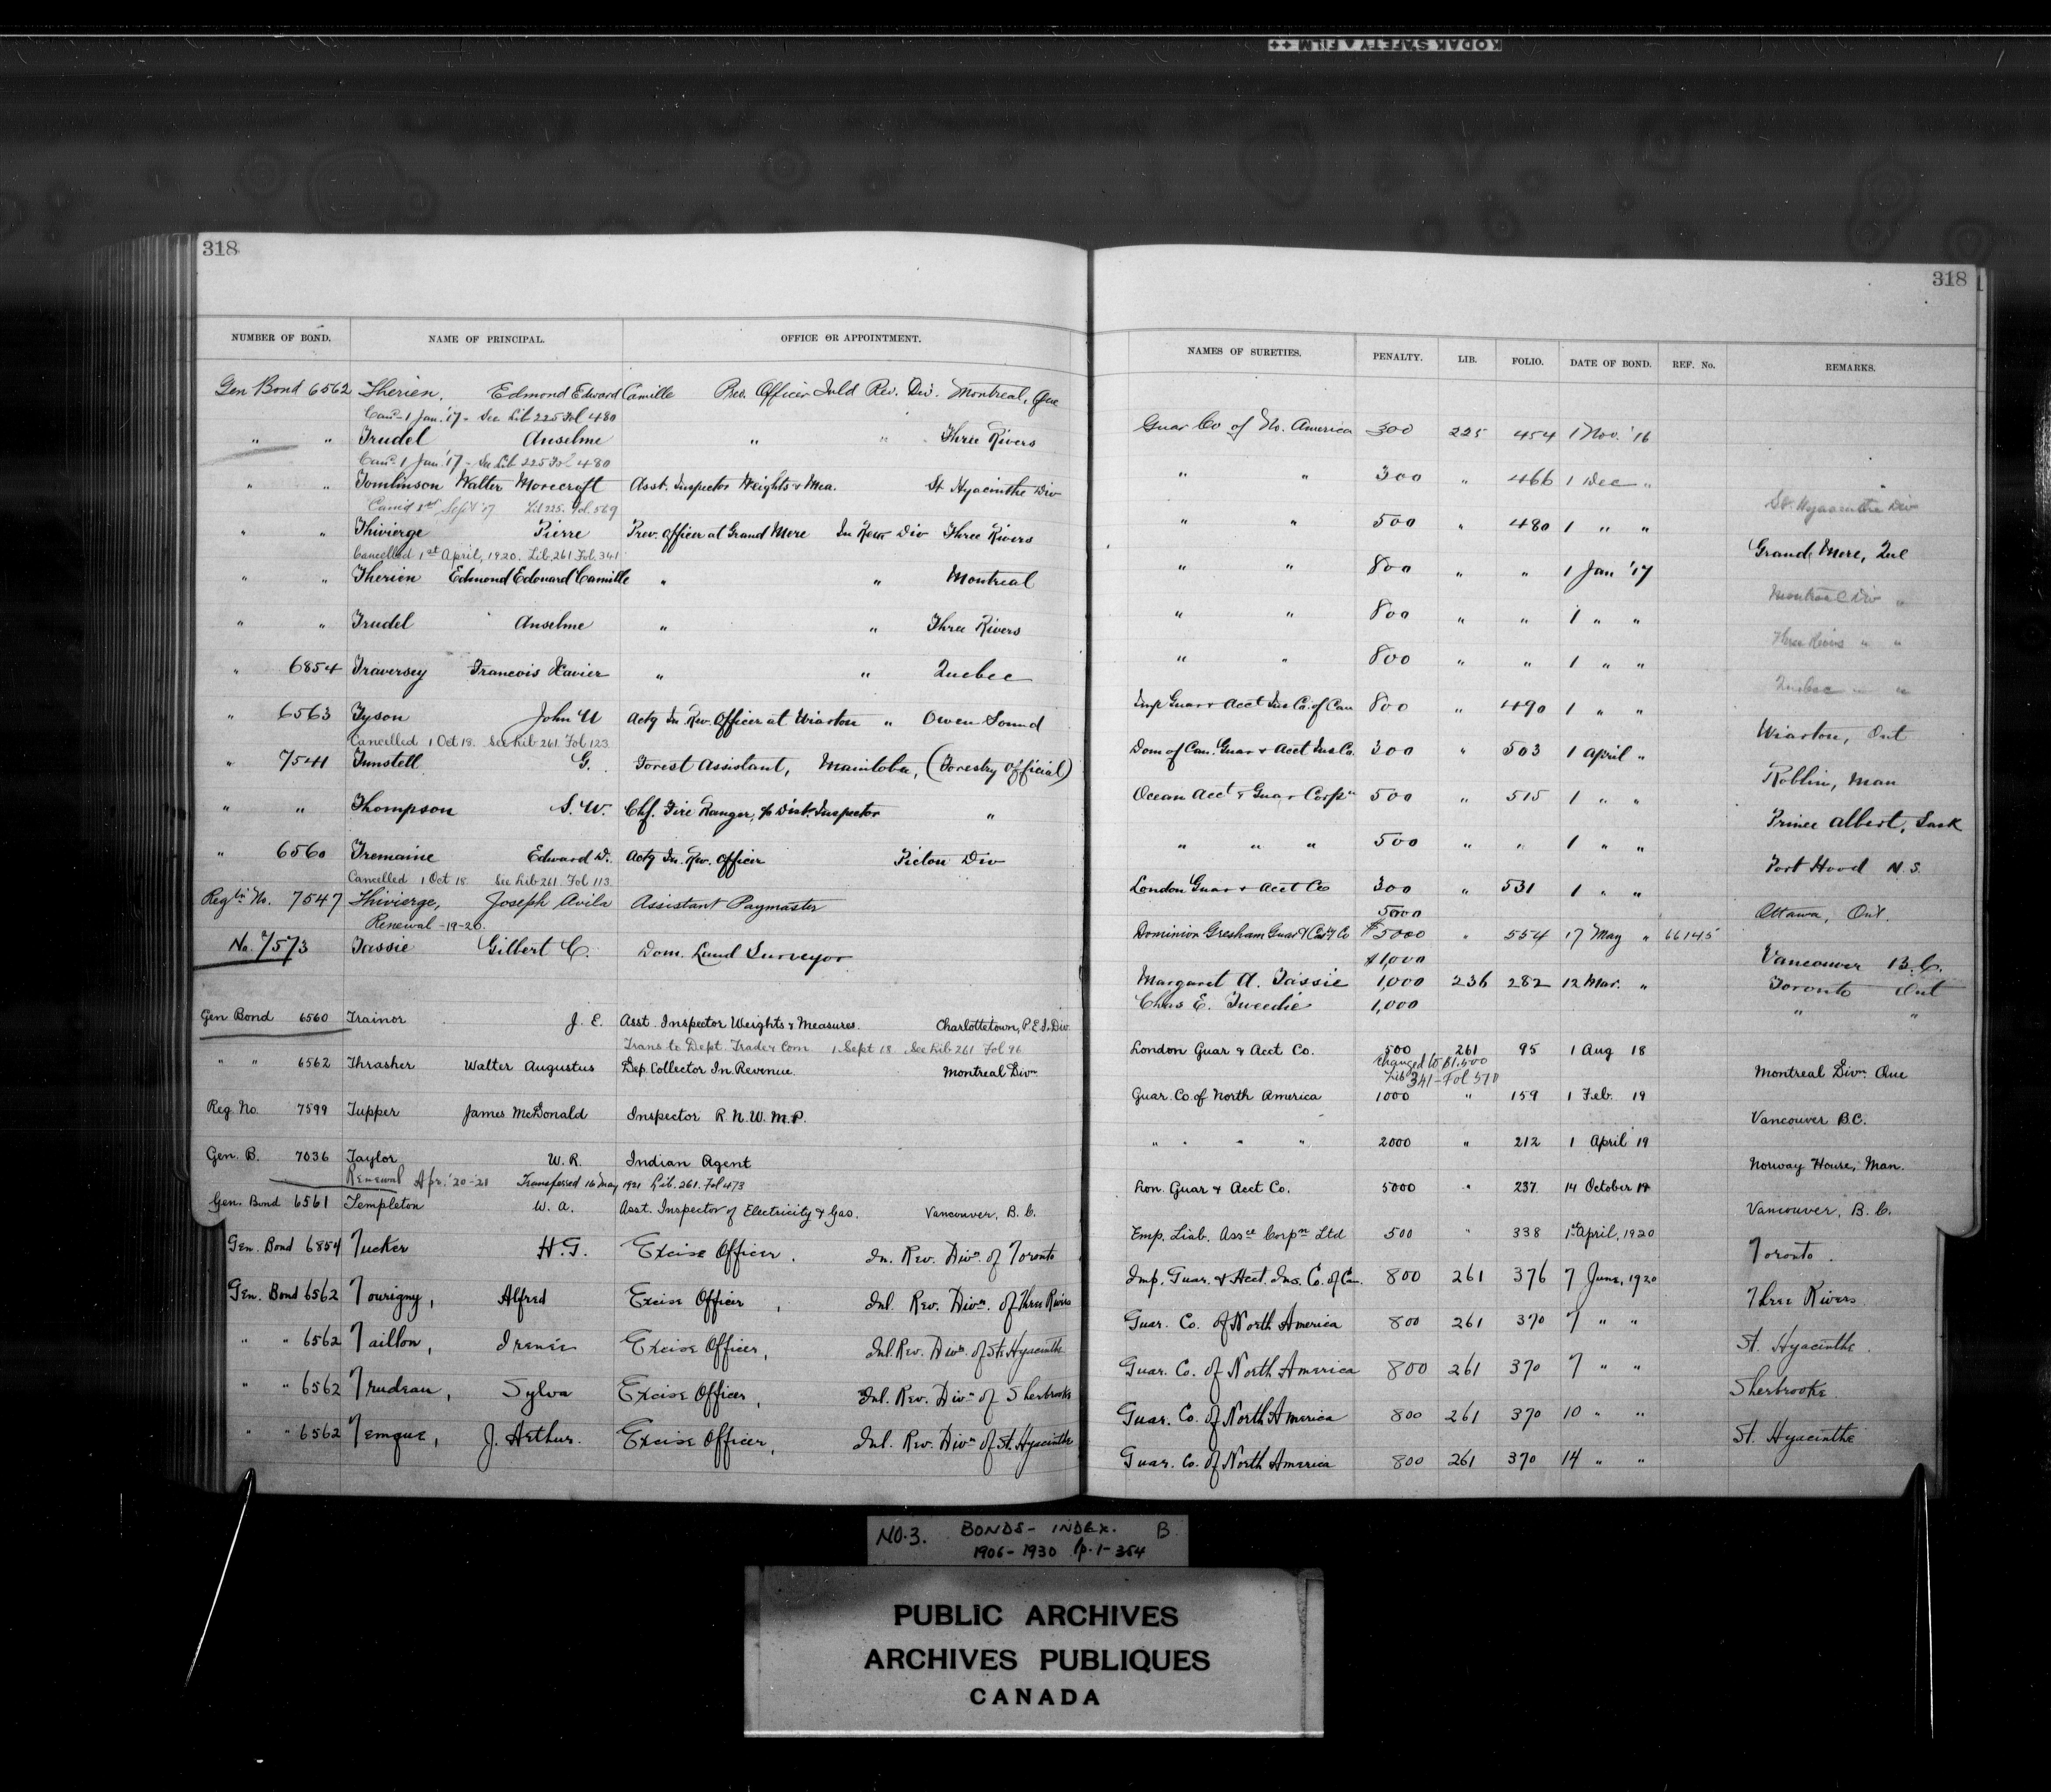 KODAK SAFETY A FILM
318
318
NUMBER OF BOND. NAME OF PRINCIPAL. OFFICE OR APPOINTMENT. NAMES OF SURETIES. PENALTY. LIB. FOLIO. DATE OF BOND. REF. No. REMARKS.
Gen Bond 6562 Therien, Edmond Edward Camille Prev. Officer Inld Rev. Div. Montreal, Que Guar Co of No. America 300 225 454 1 Nov. '16
Canc. 1 Jan. '17 - See Lib 225 Fol 480
" " Trudel Anselme " " Three Rivers " " 300 " 466 1 Dec "
Canc. 1 Jan '17 - See Lib 225 Fol 480
" " Tomlinson Walter Morecroft Asst. Inspector Weights & Mea. St Hyacinthe Div " " 500 " 480 1 " " St. Hyacinthe Div
Canc'd 1st Sept '17 Lib 225. Fol. 569
" " Thivierge Pierre Prev. Officer at Grand Mere In Rev Div Three Rivers " " 800 " " 1 Jan '17 Grand Mere, Que
Cancelled 1st April, 1920. Lib. 261 Fol. 341
" " Therien Edmond Edouard Camille " " Montreal " " 800 " " 1 " " Montreal Div "
" " Trudel Anselme " " Three Rivers " " 800 " " 1 " " Three Rivers " "
" 6854 Traversey Francois Xavier " " Quebec Imp Guar & Acct Ins Co. of Can 800 " 490 1 " " Quebec " "
" 6563 Tyson John W Actg In. Rev. Officer at Wiarton " Owen Sound Dom of Can. Guar & Acct Ins Co. 300 " 503 1 April " Wiarton, Ont
Cancelled 1 Oct 18. See Lib 261 Fol 123
" 7541 Tunstell G. Forest Assistant, Manitoba, (Forestry Official) Ocean Acct & Guar Corpn 500 " 515 1 " " Roblin, Man
" " Thompson S. W. Chf. Fire Ranger, & Dist. Inspector " " " " 500 " " 1 " " Prince Albert, Sask
" 6560 Tremaine Edward D. Actg In. Rev. Officer Pictou Div London Guar & Acct Co 300 " 531 1 " " Port Hood N. S.
Cancelled 1 Oct 18 See Lib 261 Fol 113
5000
Regtn No. 7547 Thivierge, Joseph Avila Assistant Paymaster Dominion Gresham Guar & Cas'y Co $5000 " 554 17 May " 66145 Ottawa, Ont.
Renewal -19-20.
$1,000
No. 7573 Tassie Gilbert C. Dom. Land Surveyor Margaret A. Tassie 1,000 236 282 12 Mar. " Vancouver B.C.
Toronto Ont
Chas E. Tweedie 1,000 " "
Gen Bond 6560 Trainor J. E. Asst. Inspector Weights & Measures. Charlottetown, P.E.I. Div. London Guar & Acct Co. 500 261 95 1 Aug 18
Trans to Dept. Trade & Com 1 Sept 18 See Lib 261 Fol 96
Changed to $1,500
Lib 341 - Fol 570
" " 6562 Thrasher Walter Augustus Dep. Collector In. Revenue. Montreal Divn Guar. Co. of North America 1000 " 159 1 Feb. 19 Montreal Divn. Que
Reg. No. 7599 Tupper James McDonald Inspector R. N. W. M. P. " " " " 2000 " 212 1 April 19 Vancouver B.C.
Gen. B. 7036 Taylor W. R. Indian Agent Lon. Guar & Acct Co. 5000 " 237. 14 October 19 Norway House, Man.
Renewal Apr. '20-21 Transferred 16 May 1921 Lib. 261. Fol 473
Gen. Bond 6561 Templeton W. A. Asst. Inspector of Electricity & Gas. Vancouver, B. C. Emp. Liab. Assce Corpn Ltd 500 " 338 1st April, 1920 Vancouver, B. C.
Gen. Bond 6854 Tucker H. G. Excise Officer. In. Rev. Divn. of Toronto Imp. Guar. & Acct. Ins. Co. of Can. 800 261 376 7 June, 1920 Toronto.
Gen. Bond 6562 Tourigny, Alfred Excise Officer, Inl. Rev. Divn. of Three Rivers Guar. Co. of North America 800 261 370 7 " " Three Rivers
" " 6562 Taillon, Irenée Excise Officer, Inl. Rev. Divn. of St. Hyacinthe Guar. Co. of North America 800 261 370 7 " " St. Hyacinthe.
" " 6562 Trudeau, Sylva Excise Officer, Inl. Rev. Divn of Sherbrooke Guar. Co. of North America 800 261 370 10 " " Sherbrooke.
" " 6562 Temque, J. Arthur. Excise Officer, Inl. Rev. Divn of St. Hyacinthe Guar. Co. of North America 800 261 370 14 " " St. Hyacinthe
NO. 3. BONDS - INDEX. B
1906 - 1930 p. 1 - 354
PUBLIC ARCHIVES
ARCHIVES PUBLIQUES
CANADA